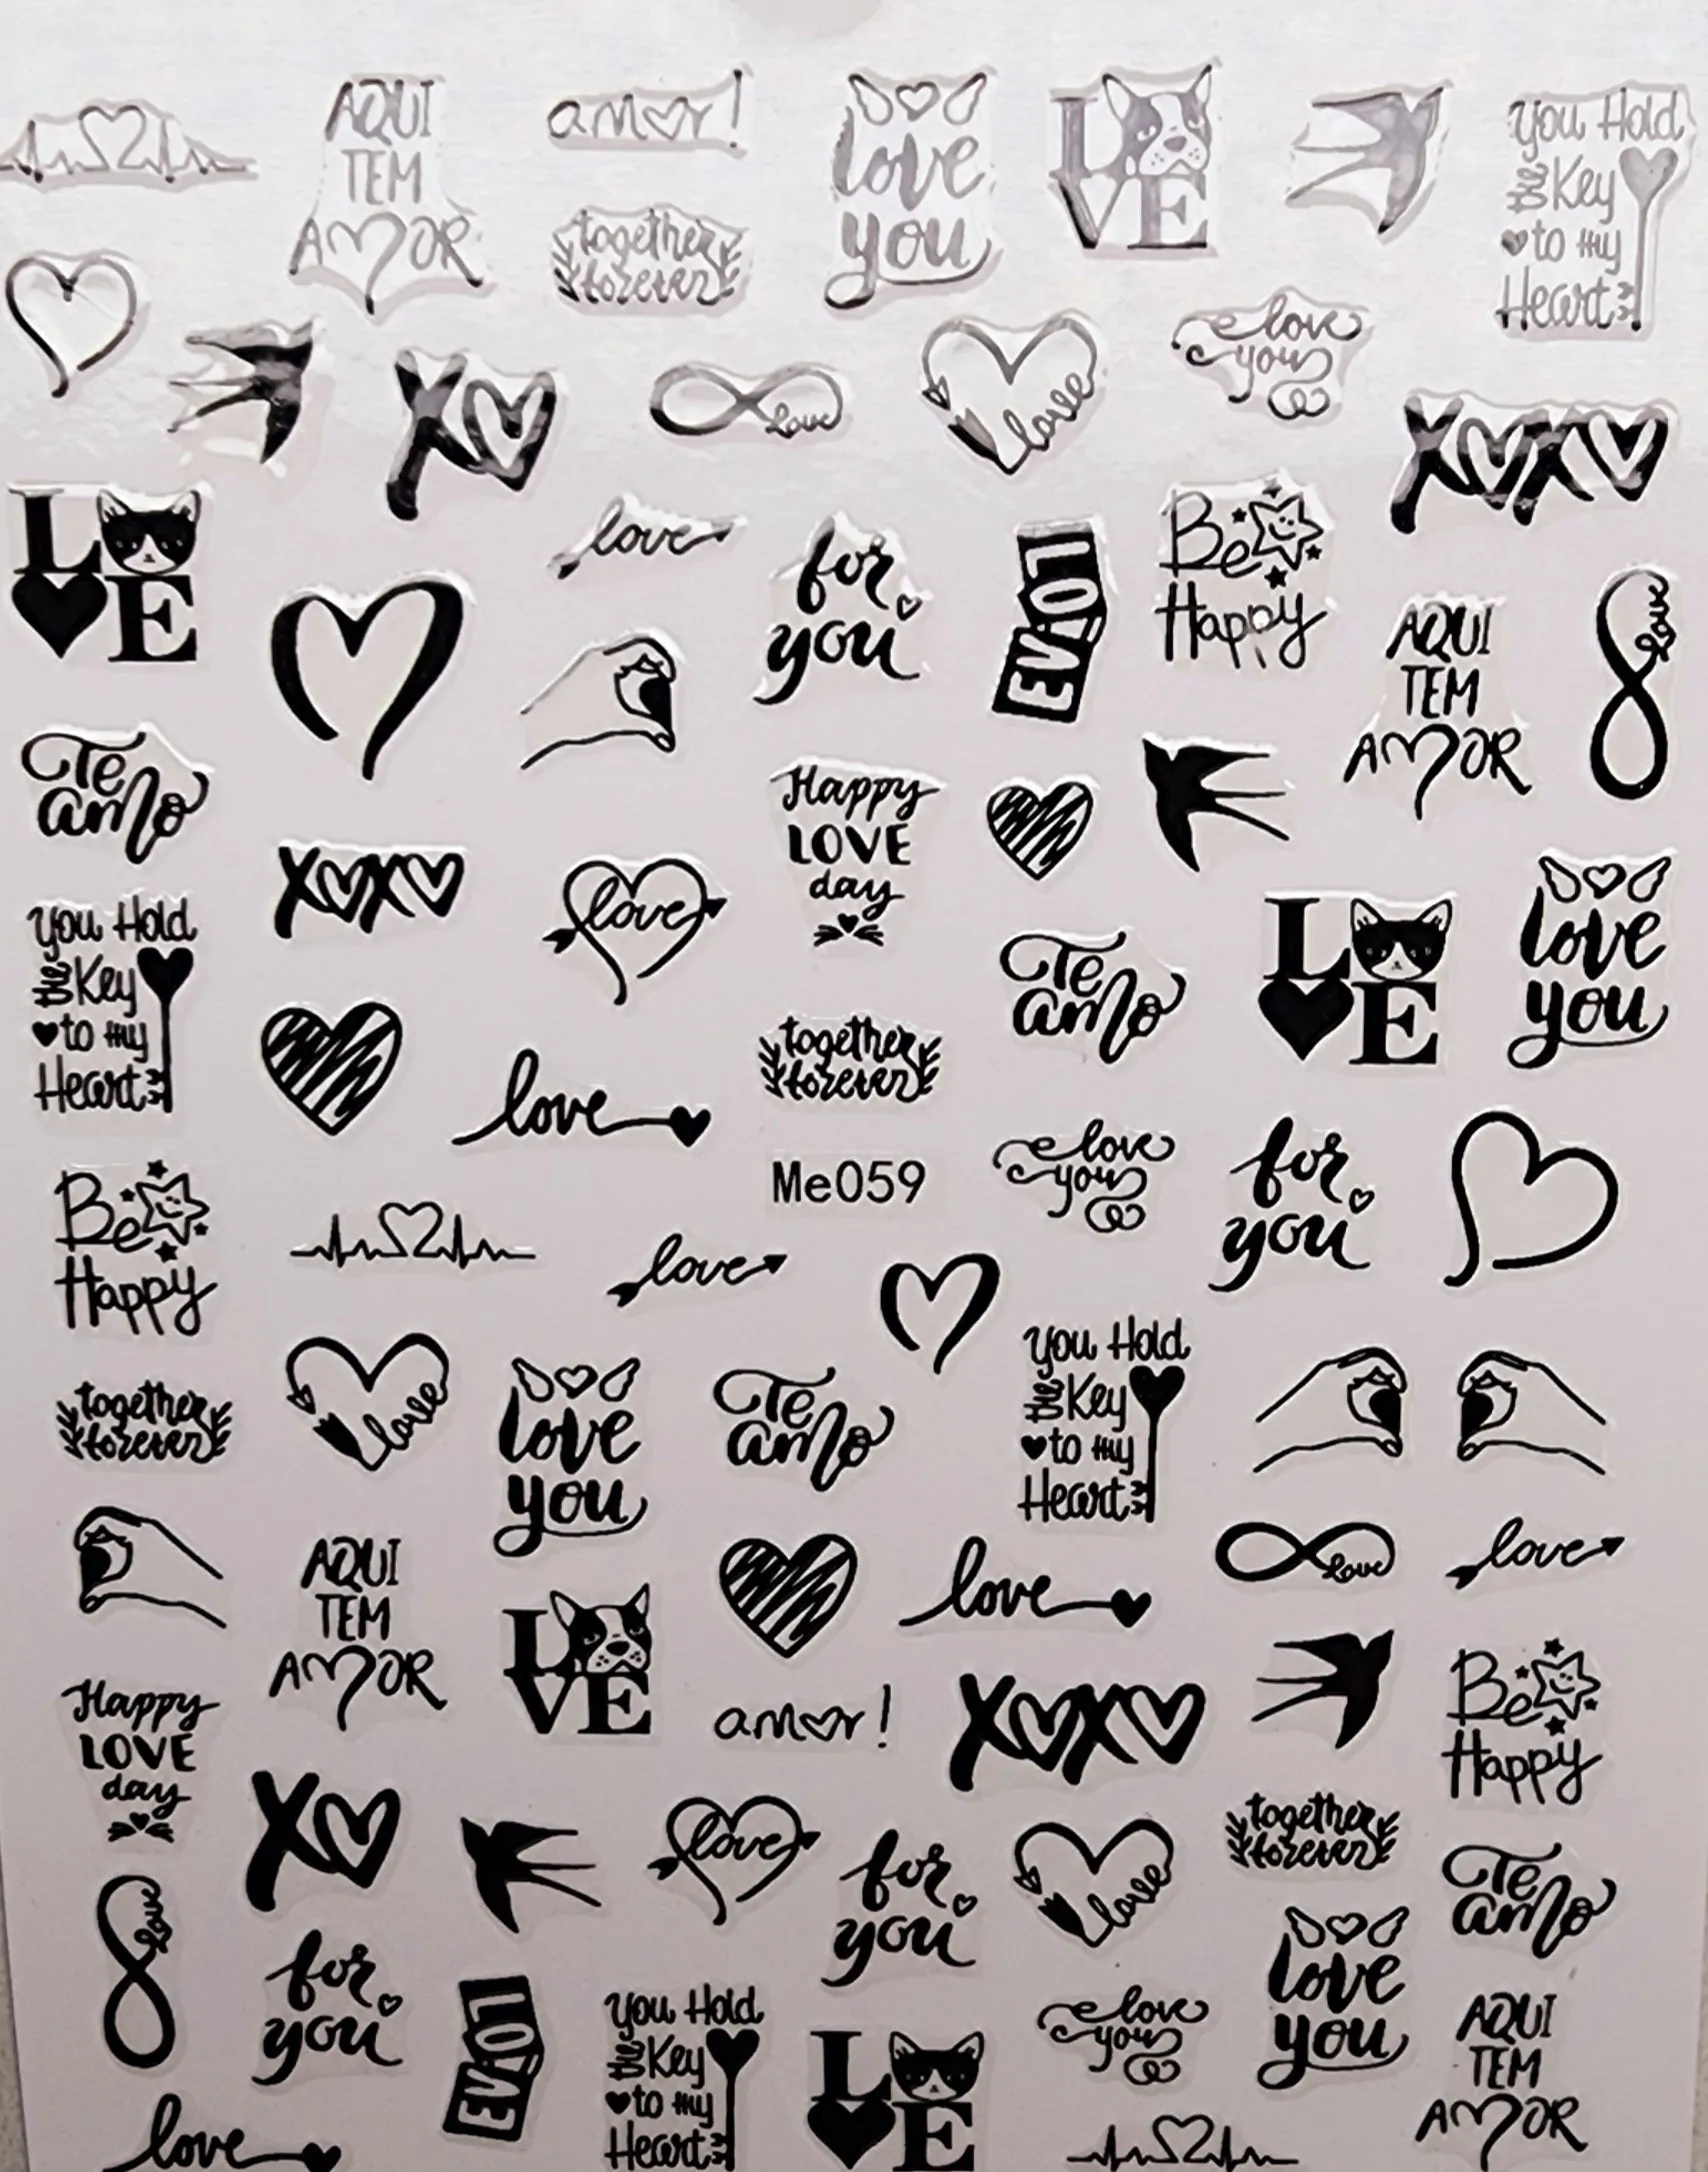 AQUI
TEM
AMOR
amor!
together
forever
love
you
LOVE
you Hold
the Key
to my
Heart
XO
Love
love
e love
you
XOXO
L
E
love
for
you
LOVE
Be
Happy
AQUI
TEM
AMOR
Love
Te
amo
Happy
LOVE
day
XOXO
love
you Hold
the Key
to my
Heart
Te
amo
L
E
love
you
love
together
forever
Me059
e love
you
for
you
Be
Happy
love
you Hold
the Key
to my
Heart
together
forever
love
love
you
Te
amo
AQUI
TEM
AMOR
LOVE
love
Love
love
Happy
LOVE
day
amor!
XOXO
Be
Happy
XO
love
for
you
love
together
forever
Te
amo
Love
for
you
LOVE
you Hold
the Key
to my
Heart
L
E
e love
you
love
you
AQUI
TEM
AMOR
love